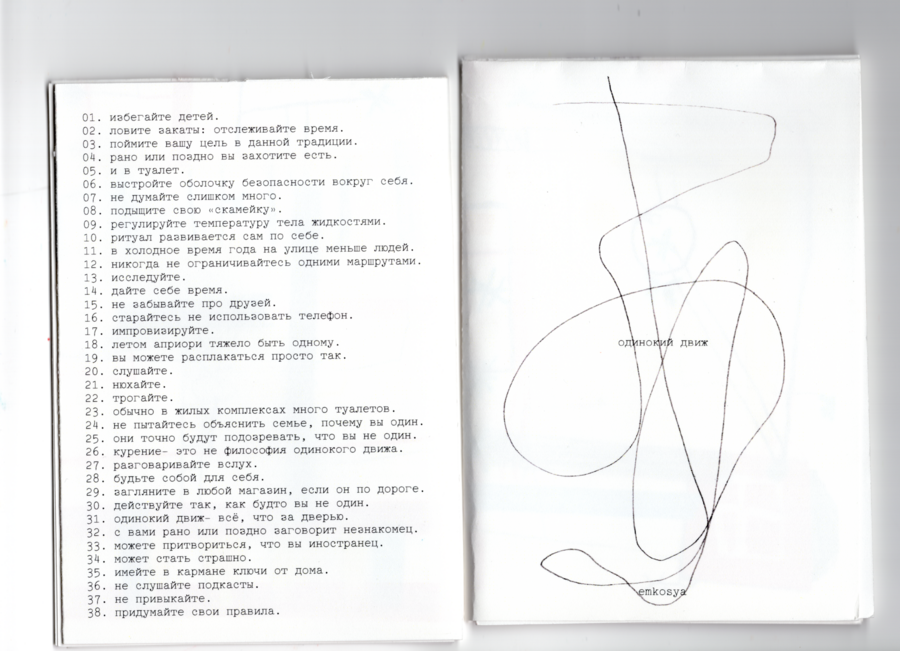 01. избегайте детей.
02. ловите закаты: отслеживайте время.
03. поймите вашу цель в данной традиции.
04. рано или поздно вы захотите есть.
05. и в туалет.
06. выстройте оболочку безопасности вокруг себя.
07. не думайте слишком много.
08. подыщите свою «скамейку».
09. регулируйте температуру тела жидкостями.
10. ритуал развивается сам по себе.
11. в холодное время года на улице меньше людей.
12. никогда не ограничивайтесь одними маршрутами.
13. исследуйте.
14. дайте себе время.
15. не забывайте про друзей.
16. старайтесь не использовать телефон.
17. импровизируйте.
18. летом априори тяжело быть одному.
19. вы можете расплакаться просто так.
20. слушайте.
21. нюхайте.
22. трогайте.
23. обычно в жилых комплексах много туалетов.
24. не пытайтесь объяснить семье, почему вы один.
25. они точно будут подозревать, что вы не один.
26. курение- это не философия одинокого движа.
27. разговаривайте вслух.
28. будьте собой для себя.
29. загляните в любой магазин, если он по дороге.
30. действуйте так, как будто вы не один.
31. одинокий движ- всё, что за дверью.
32. с вами рано или поздно заговорит незнакомец.
33. можете притвориться, что вы иностранец.
34. может стать страшно.
35. имейте в кармане ключи от дома.
36. не слушайте подкасты.
37. не привыкайте.
38. придумайте свои правила.
одинокий движ
emkosya